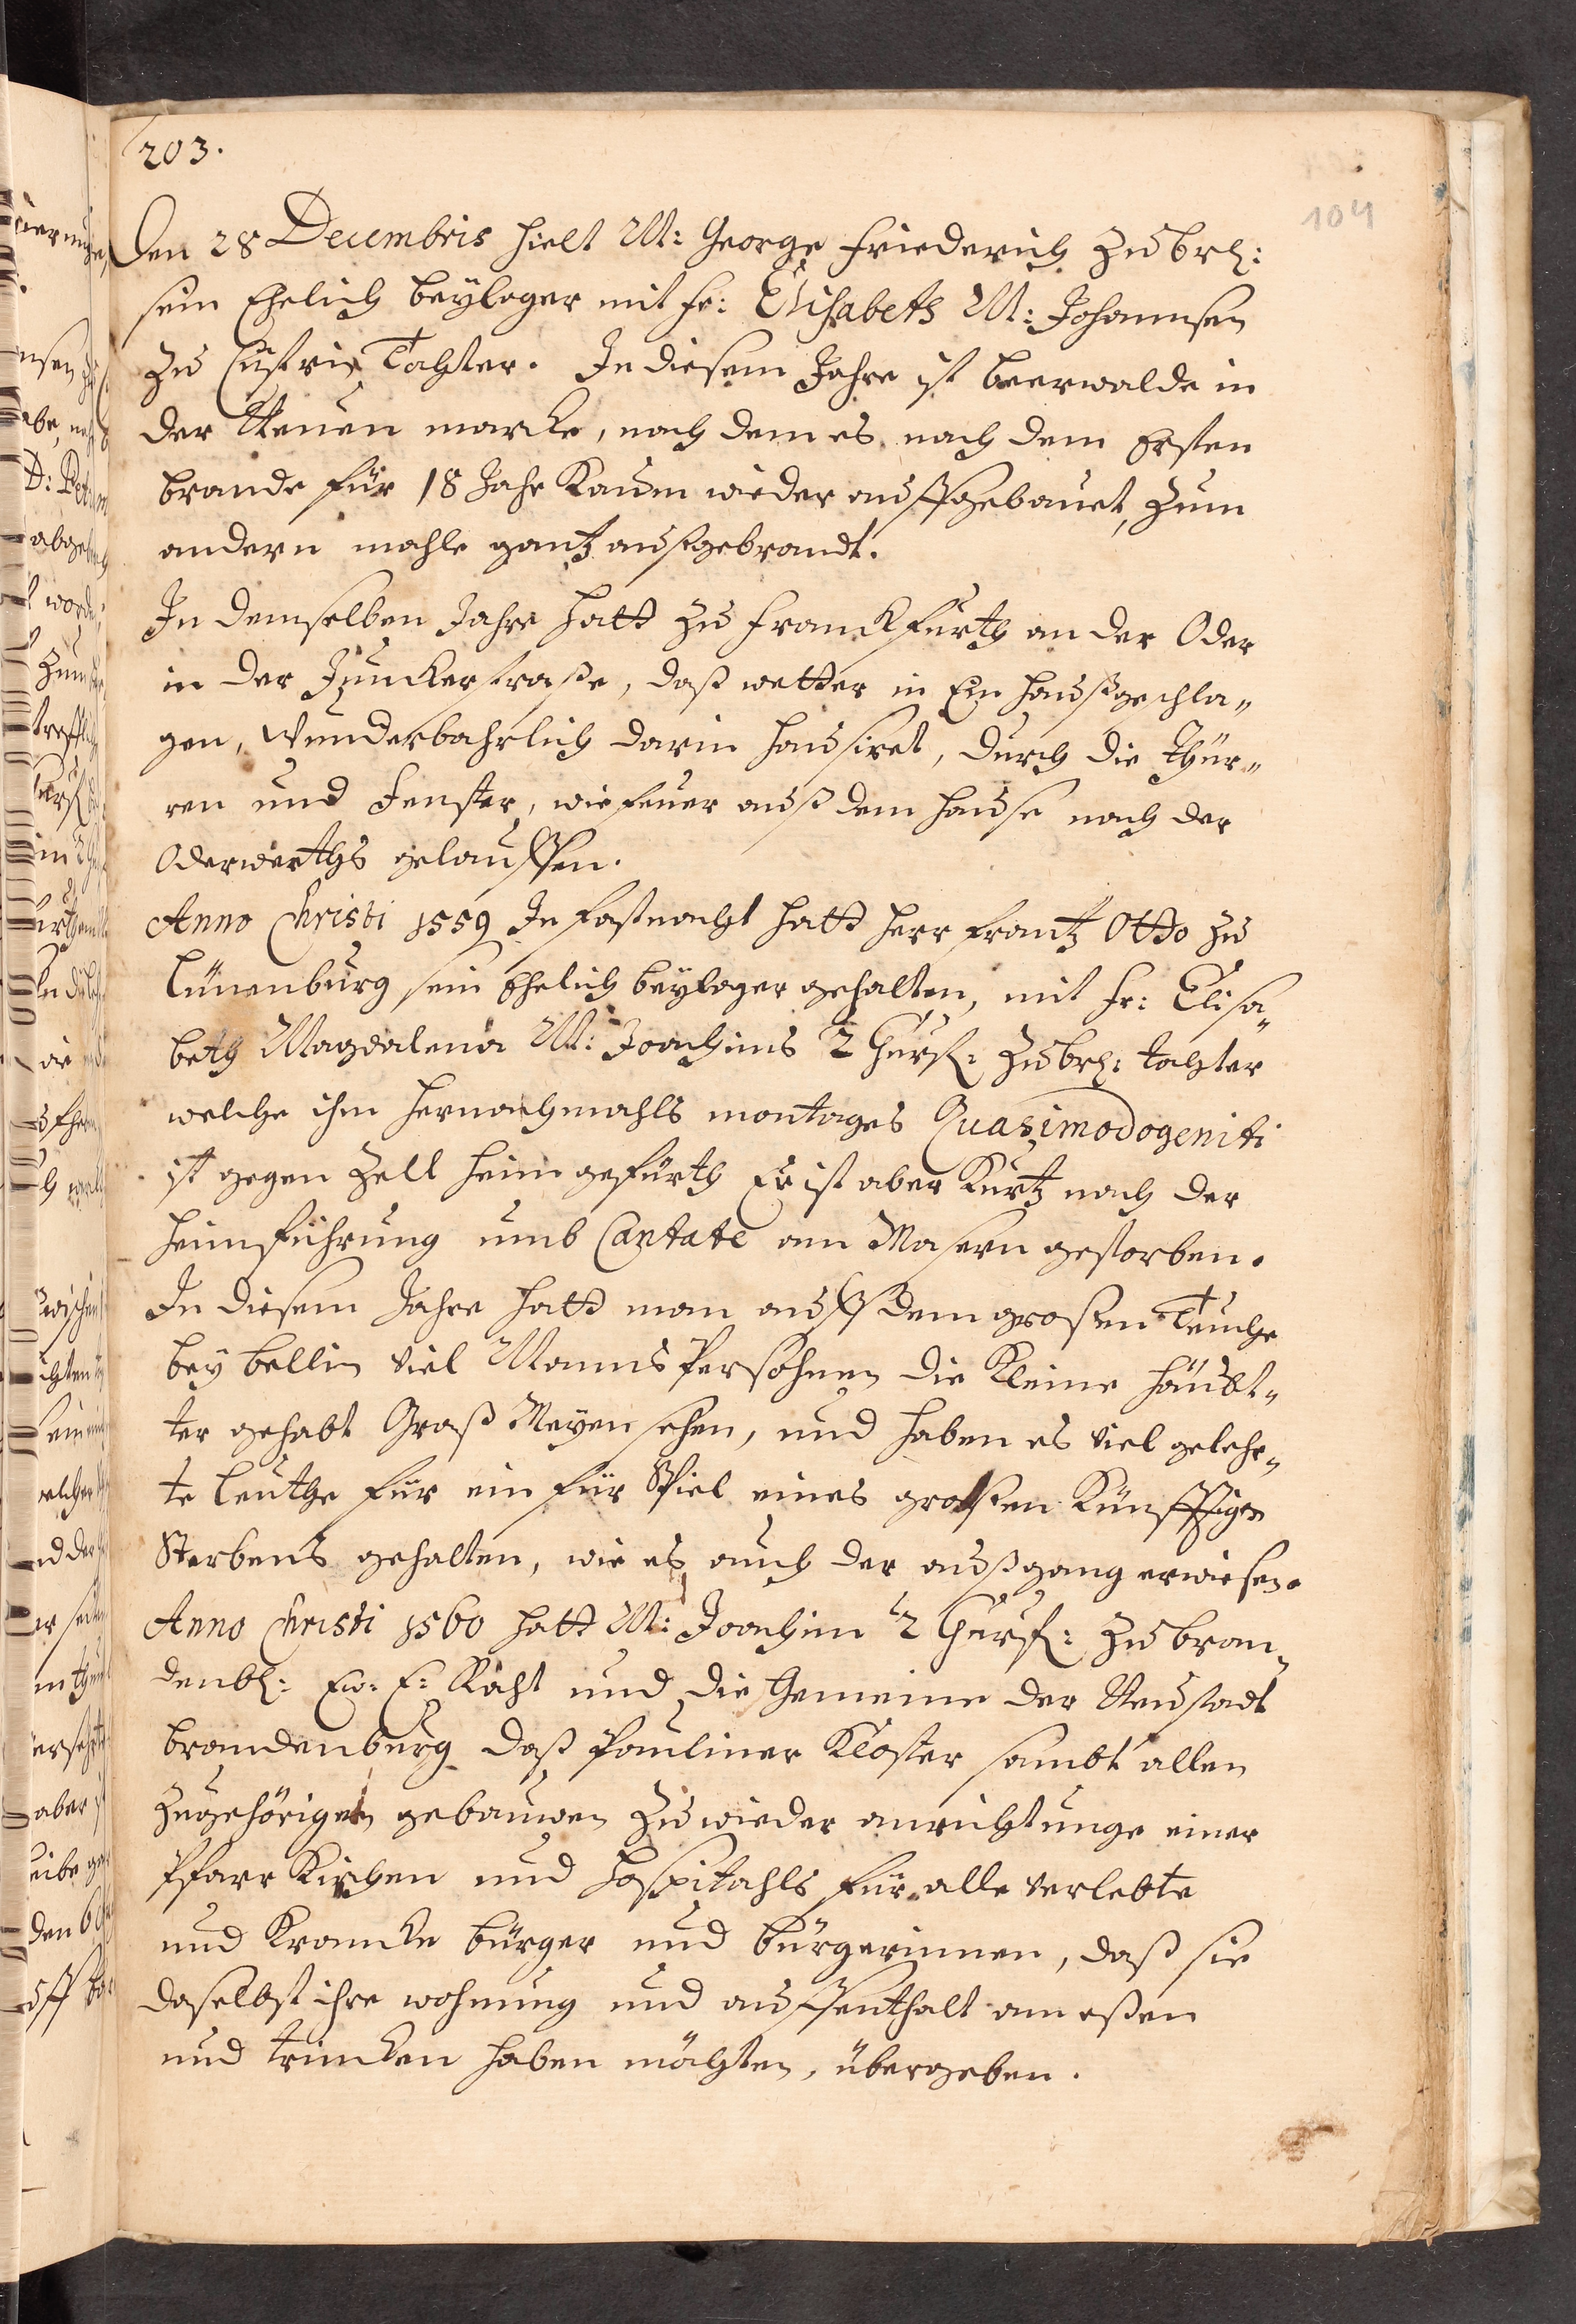 203.
104
Den 28 Decembris hielt M: George Friederich zu Brl:
sein Ehelich beylager mit Fr: Elisabeth M: Johannsen
zu Cüstrin Tochter. In diesem Jahre ist beerwalde in
der Neuen marcke, nach dem es nach dem Ersten
brande für 18 Jahr kaum wieder auffgebauet, zum
andern mahle gantz außgebrandt.
In demselben Jahre hatt zu Franckfurth an der Oder
in der Junckerstraße, daß wetter in Ein hauß geschla„
gen, wunderbahrlich darin hausiret, durch die Thür„
ren und Fenster, wie feuer auß dem hause nach der
Oderwerths gelauffen.
Anno Christi 1559 In fastnacht hatt herr Frantz Otto zu
Lünenburg sein Ehelich beylager gehalten, mit Fr: Elisa„
beth Magdalena M: Joachims 2 Churf: zu Brl: tochter
welche ihm hernachmahls montages Quasimodogeniti
ist gegen Zell heim gefürth Er ist aber kurtz nach der
heimführung umb Cantate am Masern gestorben.
In diesem Jahre hatt man auff dem großen Teuche
bey bellin viel Manns Persohnen die kleine häubt„
ter gehabt Graß Meyen sehen, und haben es viel gelehr„
te leuthe für ein für Spiel eines großen künfftigen
Sterbens gehalten, wie es auch der außgang erwiesen.
Anno Christi 1560 hatt M: Joachim 2 Churf: zu bran„
denbl: Ew. E: Raht und die Gemeine der Neustadt
brandenburg daß Pauliner Kloster sambt allen
zugehörigen gebauwen zu wieder anrichtunge einer
Pfarr Kirchen und Hospitahls für alle verlebte
und krancke bürger und bürgerinnen, daß sie
daselbst ihre wohnung und auffenthalt am eßen
und trincken haben möchten, übergeben.